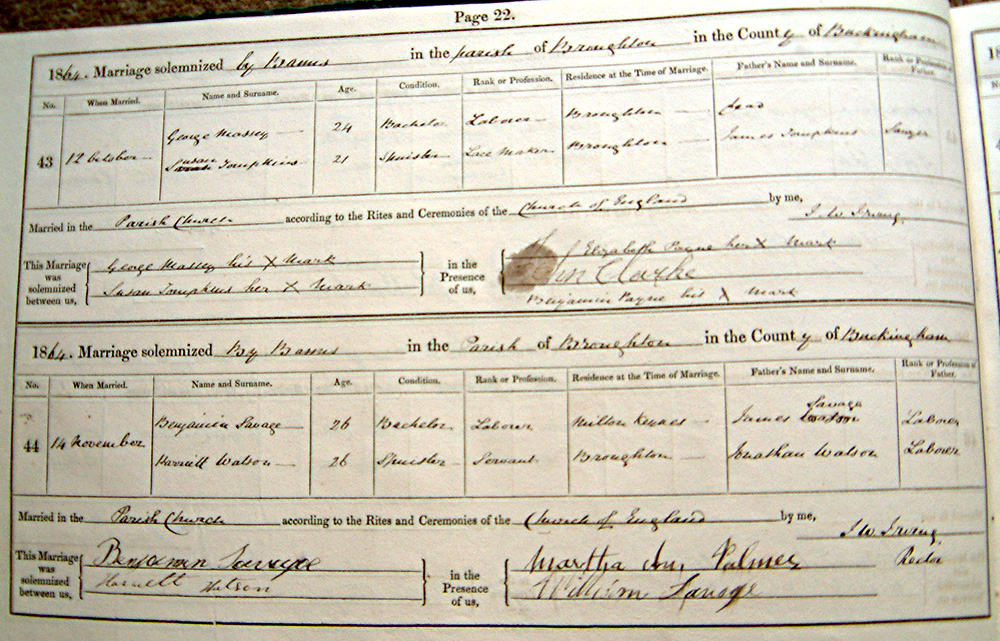 Page 22.
1864. Marriage solemnized by Banns in the parish of Broughton in the County of Buckingham
No. When Married. Name and Surname. Age. Condition. Rank or Profession. Residence at the Time of Marriage. Father's Name and Surname. Rank or Profession of Father.
George Massey 24 Bachelor Laborer Broughton dead
43 12 October Susan Tompkins 21 Spinster Lace Maker Broughton James Tompkins Sawyer
Married in the Parish Church according to the Rites and Ceremonies of the Church of England by me, I W Irving,
This Marriage was solemnized between us,
George Massey his X Mark
Susan Tompkins her X Mark
in the Presence of us,
Elizabeth Payne her X Mark
John Clarke
Benjamin Payne his X Mark
1864. Marriage solemnized By Banns in the Parish of Broughton in the County of Buckingham
No. When Married. Name and Surname. Age. Condition. Rank or Profession. Residence at the Time of Marriage. Father's Name and Surname. Rank or Profession of Father.
Benjamin Savage 26 Bachelor Laborer Milton Keynes James Savage Laborer
44 14 November Harriett Watson 26 Spinster Servant Broughton Jonathan Watson Laborer
Married in the Parish Church according to the Rites and Ceremonies of the Church of England by me, I W Irving
Rector
This Marriage was solemnized between us,
Benjamen Savage
Harriett Watson
in the Presence of us,
Martha Ann Palmer
William Savage